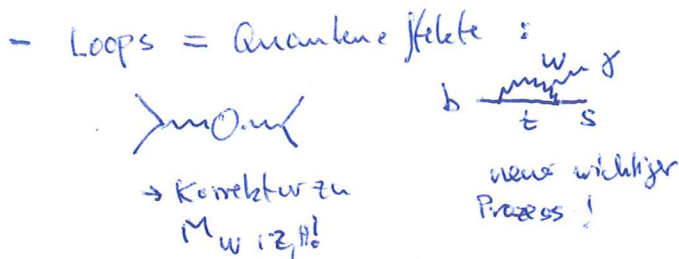 - Loops = Quanteneffekte :
W γ
b t s
→ Korrektur zu
M W, Z, H!
neuer wichtiger
Prozess !